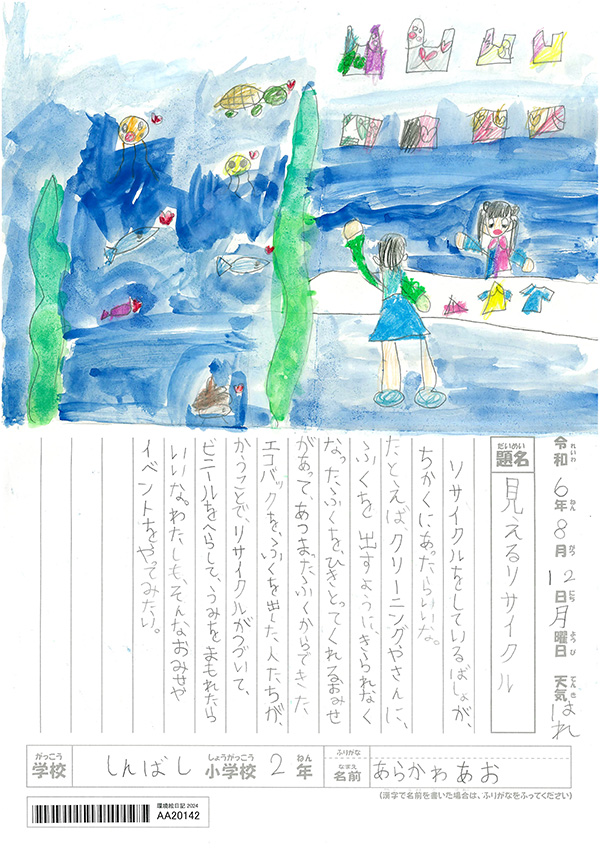 令和6年8月12日月曜日 天気はれ
れいわ ねん がつ にち ようび てんき
だいめい
題名 見えるリサイクル
リサイクルをしているばしょが、
ちかくにあったらいいな。
たとえばクリーニングやさんに、
ふくを出すように、きられなく
なったふくを、ひきとってくれるおみせ
があって、あつまったふくからできた
エコバックを、ふくを出した、人たちが、
かうことで、リサイクルがつづいて、
ビニールをへらして、うみをまもれたら
いいな。わたしも、そんなおみせや
イベントをやってみたい。
がっこう しょうがっこう ねん
学校 しんばし 小学校 2年
ふりがな
なまえ
名前 あらかわあお
(漢字で名前を書いた場合は、ふりがなをふってください)
環境絵日記 2024
AA20142